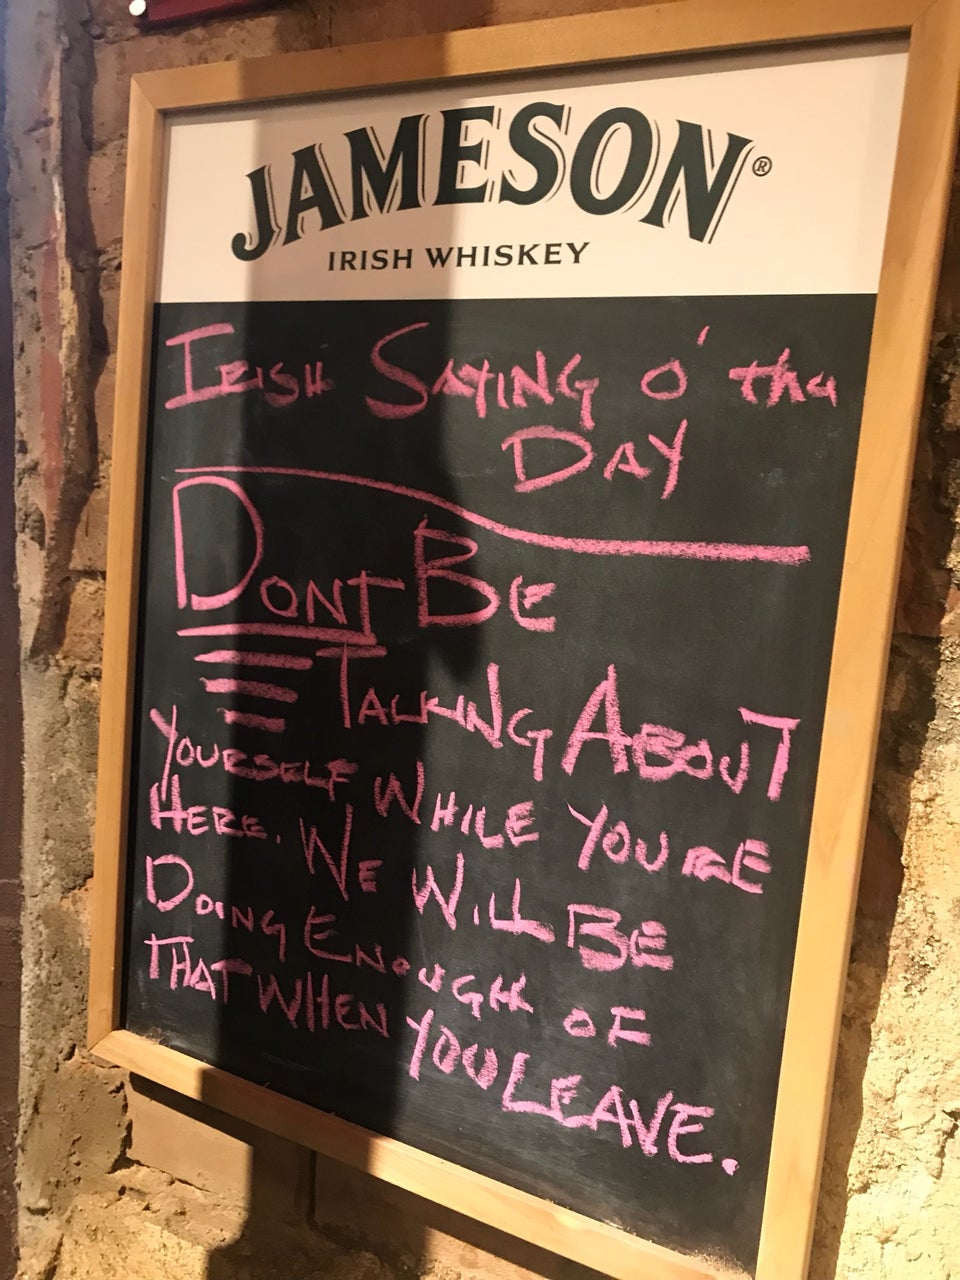 JAMESON®
IRISH WHISKEY
IRISH SAYING O' tha
DAY
DONT BE
TALKING ABOUT
YOURSELF WHILE YOURE
HERE. WE WILL BE
DOING ENOUGH OF
THAT WHEN YOU LEAVE.